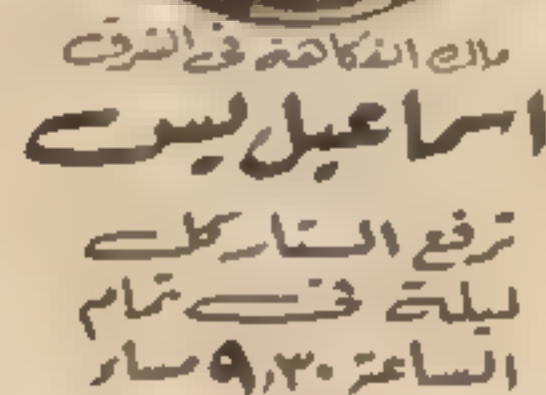 ملك الفكاهة فى الشرق
اسماعيل يس
ترفع الستار كل
ليلة فى تمام
الساعة ٩,٣٠ مساء